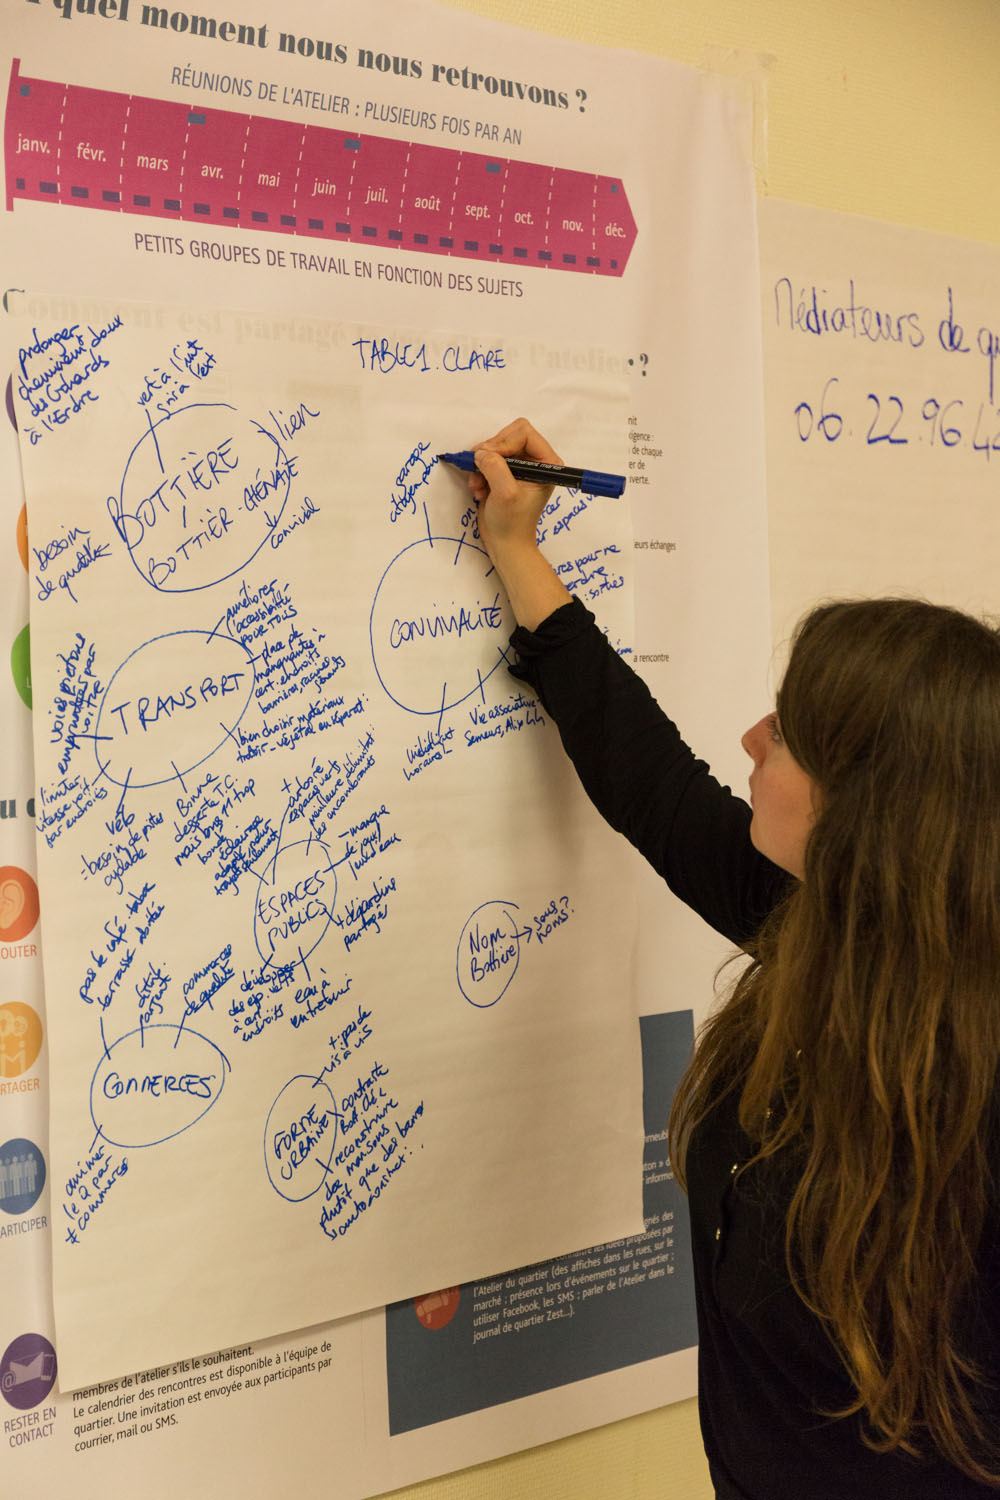 quel moment nous nous retrouvons ?
RÉUNIONS DE L'ATELIER : PLUSIEURS FOIS PAR AN
janv. févr. mars avr. mai juin juil. août sept. oct. nov. déc.
PETITS GROUPES DE TRAVAIL EN FONCTION DES SUJETS
Comment est partagé de l'atelier ?
TABLE 1. CLAIRE
prolonger
cheminemt doux
des Gohards
à l'Erdre
vert à l'
gris à l'est
BOTTIÈRE /
BOTTIÈR-CHÉNAIE
lien
convivial
besoin
de qualité
TRANSPORT
améliorer
l'accessibilité
POUR TOUS
- place de
manquantes à
cert. endroits
barrières, racines
bien choisir matériaux
voies piétons
empruntées par
voiture
limiter
vitesse
par endroits
vélo
= besoin de pistes
cyclable
Bonne
desserte T.C.
mais longs trop
éclairage
adapté pour
ESPACES
PUBLICS
+ arboré
espaces verts
meilleure délimitat°
des encombrants
- manque
de jeux /
jeux d'eau
+ de jardins
partagés
développer
des esp. verts
à cert.
endroits
eau à
entretenir
COMMERCES
pas de café-tabac
terrasse abritée
distrib.
argent
commerces
de qualité
animer
le Q par
≠ commerces
FORME
URBAINE
+ pas de
vis à vis
contraste
Bott. Ché <
reconstruire
des maisons
plutôt que des barres
CONVIVIALITÉ
garage
citoyen pour
Vie associative -
Semeurs,
horaires
NOM
Bottière
→ sous?
noms?
Médiateurs de qu
06.22.96.42
OUTER
PARTAGER
PARTICIPER
RESTER EN
CONTACT
nit
igence :
de chaque
er de
verte.
eurs échanges
a rencontre
informer
connaître les idées proposées par
l'Atelier du quartier (des affiches dans les rues, sur le
marché ; présence lors d'événements sur le quartier ;
utiliser Facebook, les SMS ; parler de l'Atelier dans le
journal de quartier Zest...).
membres de l'atelier s'ils le souhaitent.
Le calendrier des rencontres est disponible à l'équipe de
quartier. Une invitation est envoyée aux participants par
courrier, mail ou SMS.
permanent marker